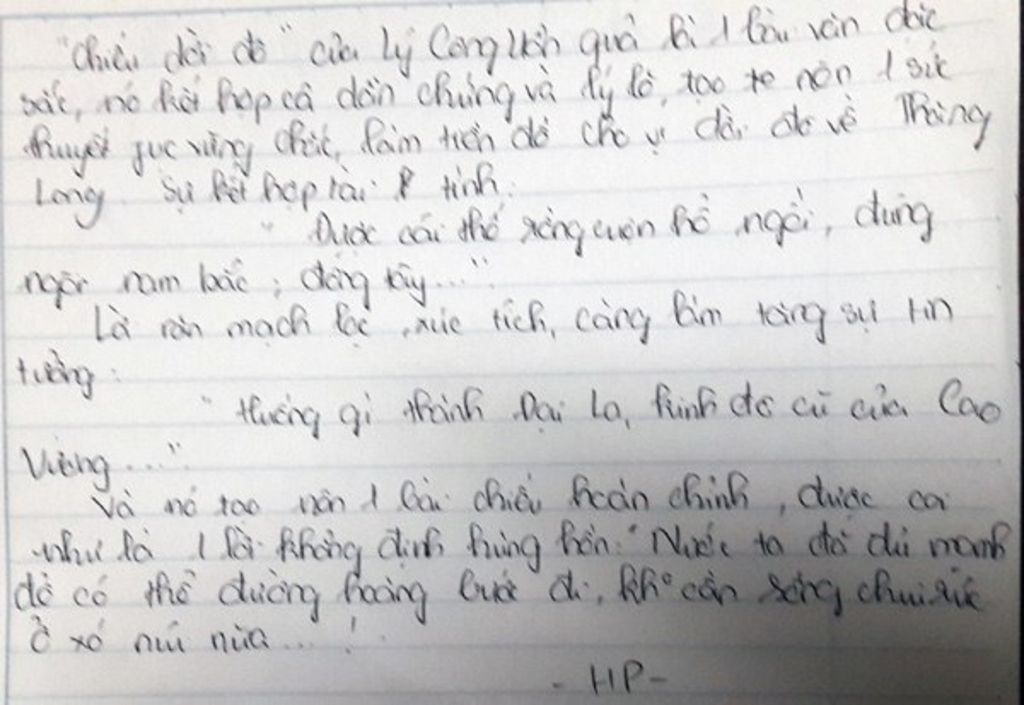 "Chiếu dời đô" của Lý Công Uẩn quả là 1 bài văn đặc
sắc, nó kết hợp cả dẫn chứng và lý lẽ, tạo nên 1 sức
thuyết phục vững chắc, làm tiền đề cho vị dời đô về Thăng
Long. Sự kết hợp tài & tình.
"Được cái thế rồng cuộn hổ ngồi, đúng
ngôi nam bắc; đông tây..."
Là văn mạch lạc, súc tích, càng làm tăng sự tin
tưởng:
"Huống gì thành Đại La, kinh đô cũ của Cao
Vương..."
Và nó tạo nên 1 bài chiếu hoàn chỉnh, được coi
như là 1 lời khẳng định hùng hồn: "Nước ta đã đủ mạnh
để có thể đường hoàng bước đi, kh° cần sống chui rúc
ở xó núi nữa...!
- HP -